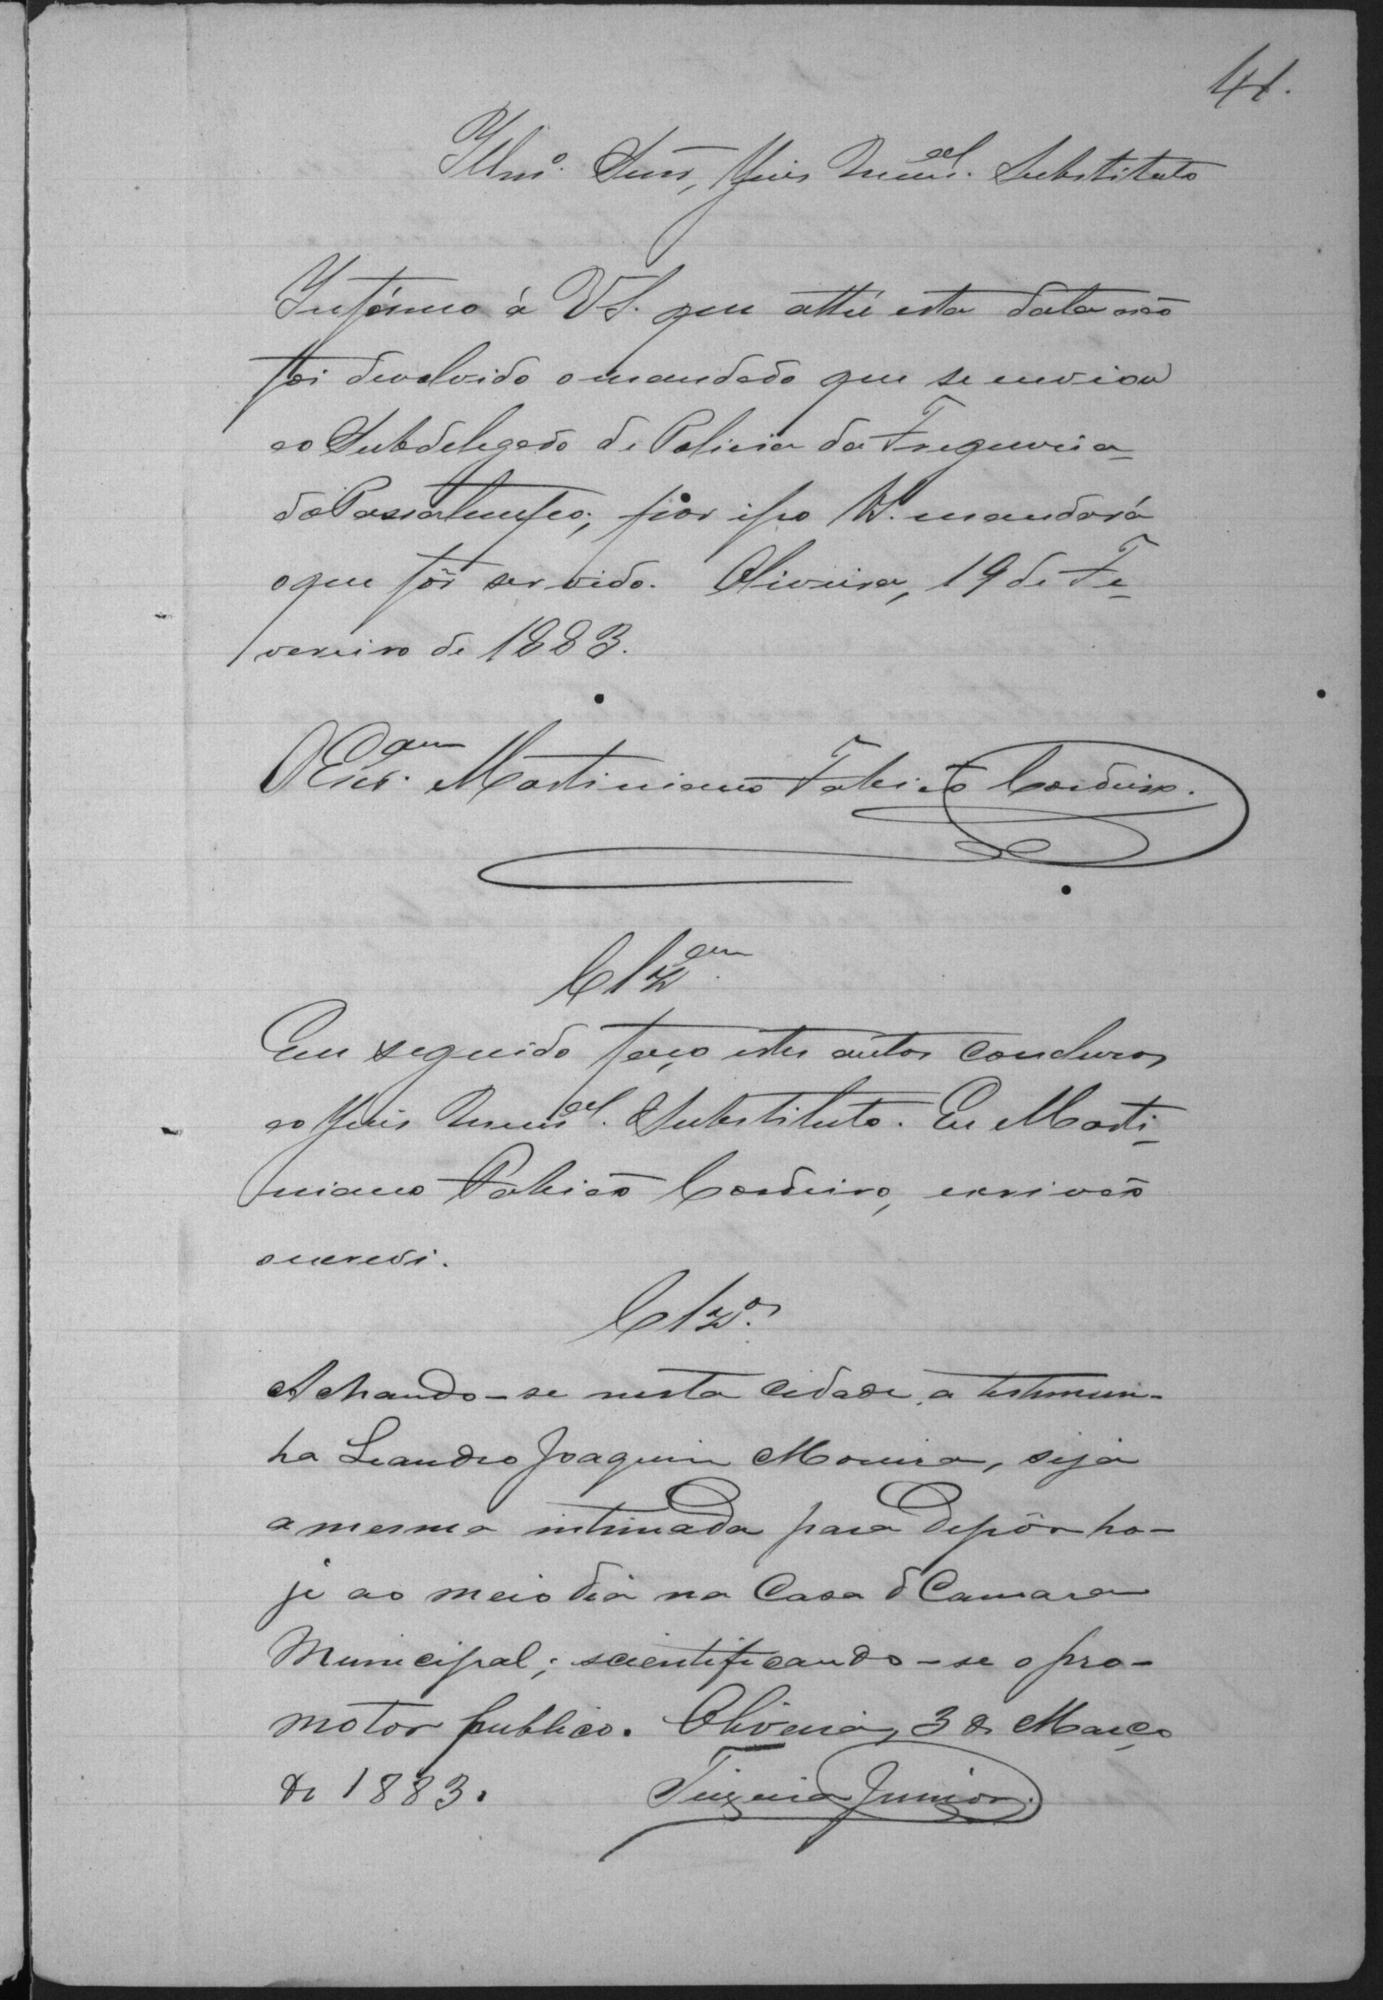 41.
Illmo. Snr, Juis Munical. Substituto
Infórmo á VS. que atté esta data não
foi devolvido o mandado que se enviou
ao Subdelegado de Policia da Freguesia
do Passatempo; por isso VS. mandará
o que fôr servido. Oliveira, 19 de Fe-
vereiro de 1883.
O Escram. Martiniano Fabião Cordeiro.
Clzam.
Em seguida faço estes autos conclusos
ao Juis Munical. Substituto. Eu Marti-
niano Fabião Cordeiro, escrivão
o escrevi.
Clzos.
Achando-se nesta cidade a testemun-
ha Leandro Joaquim Moreira, seja
a mesma intimada para depôr ho-
je ao meio dia na Casa d Camara
Municipal; scientificando-se o pro-
motor publico. Oliveira, 3 de Março
de 1883. Teixeira Junior.